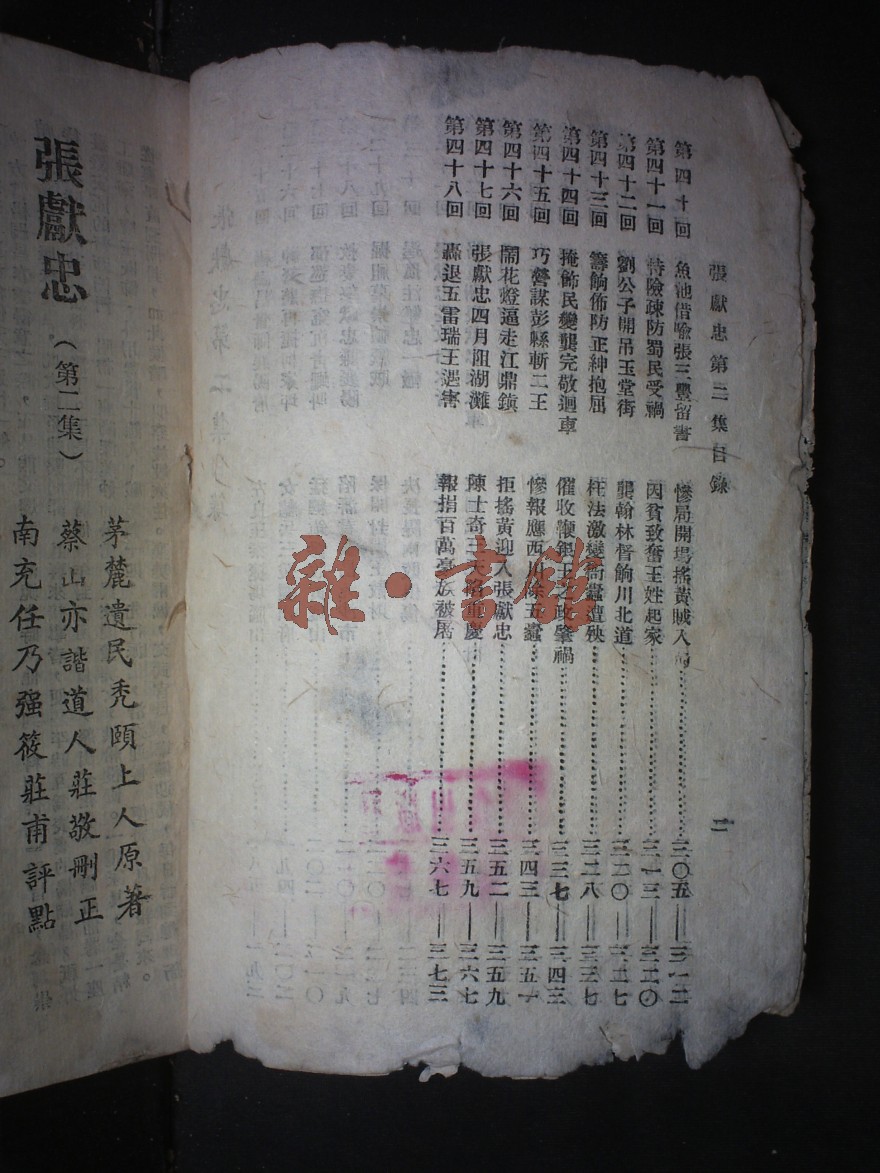 張獻忠第二集目錄
第四十回 魚池借喻張三豐留書 慘局開場搖黃賊入……三〇五——三一二
第四十一回 恃險疎防蜀民受禍 因貧致奮王姓起家……三一三——三二〇
第四十二回 劉公子開吊玉堂街 龔翰林督餉川北道……三二〇——三二七
第四十三回 籌餉佈防正紳抱屈 枉法激變衙蠹遭殃……三二八——三三七
第四十四回 掩飾民變龔完敬迴車 催收鞭銀王之政肇禍……三三七——三四三
第四十五回 巧營謀彭縣斬二王 慘報應西川除五蠹……三四三——三五一
第四十六回 鬧花燈逼走江鼎鎮 拒搖黃迎入張獻忠……三五二——三五九
第四十七回 張獻忠四月阻湖灘 陳士奇三天陷重慶……三五九——三六七
第四十八回 轟退五雷瑞王遇害 報捐百萬豪族被屠……三六七——三七三
二
張獻忠（第二集）
茅麓遺民禿頤上人原著
蔡山亦諧道人莊敬刪正
南充任乃强筱莊甫評點
雜·書館